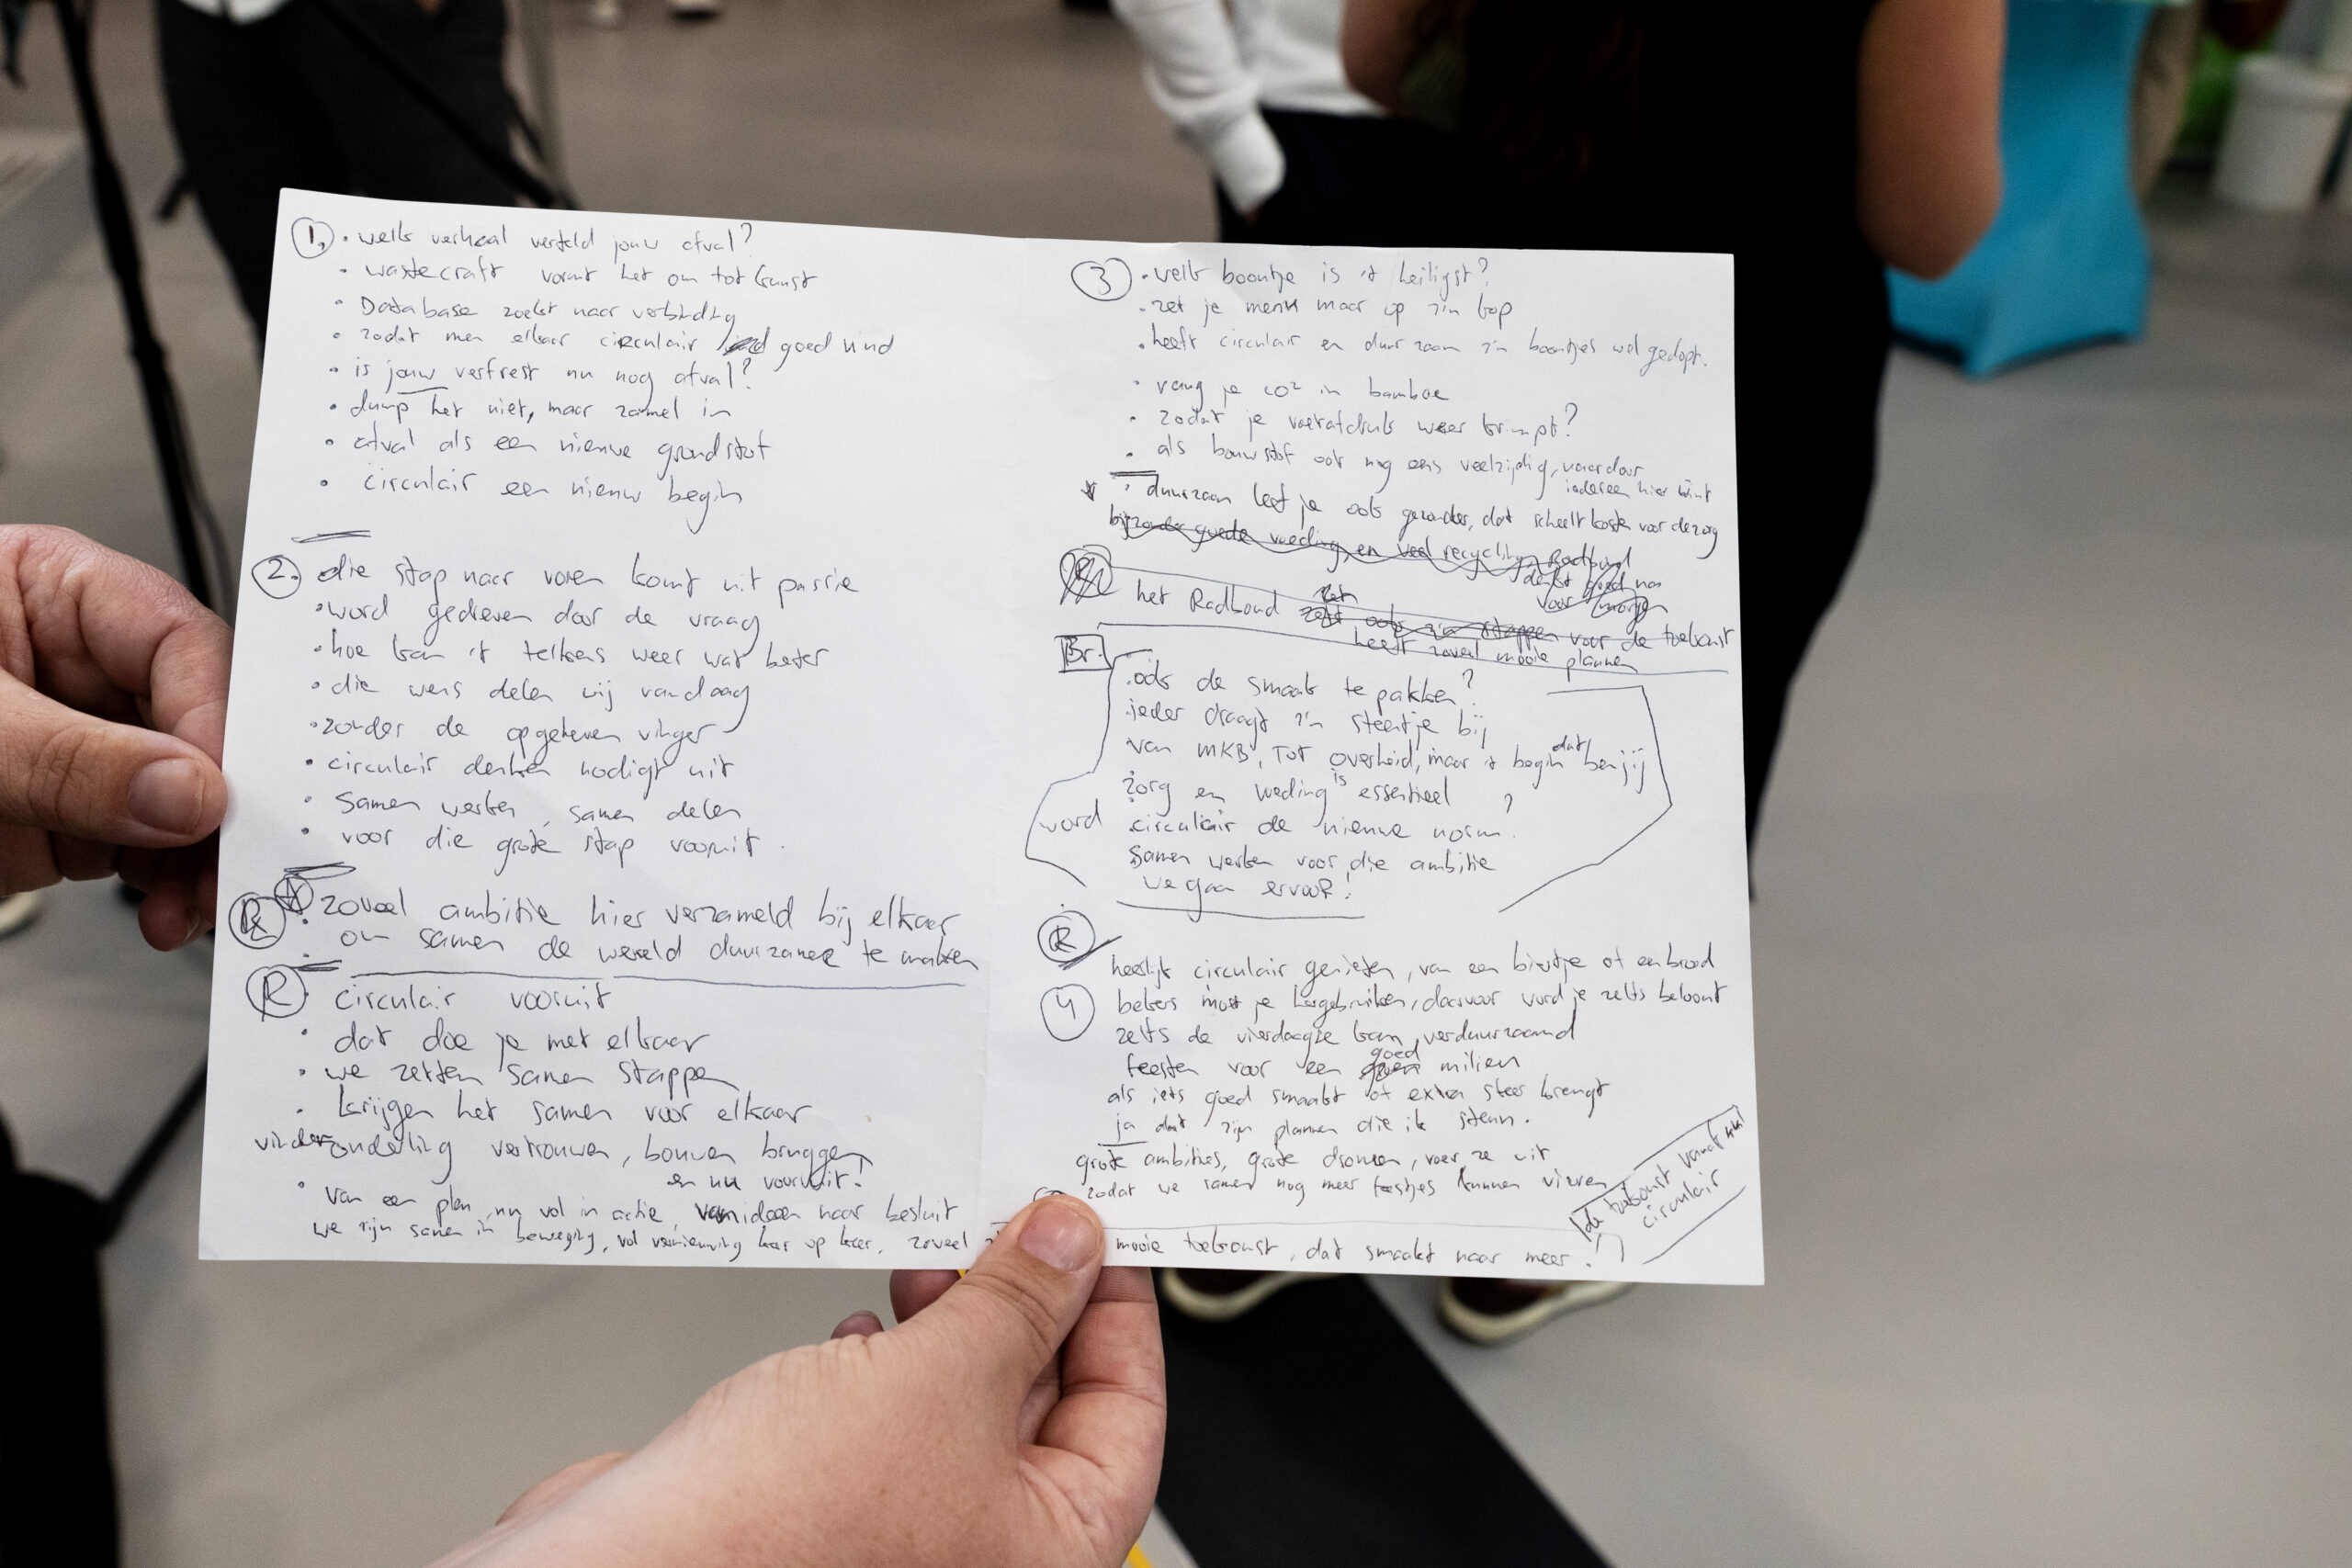 1. · welk verhaal verteld jouw afval?
· wastecraft vormt het om tot kunst
· Database zoekt naar verbinding
· zodat men elkaar circulair goed vind
· is jouw verfrest nu nog afval?
· dump het niet, maar zamel in
· afval als een nieuwe grondstof
· circulair een nieuw begin
2. · die stap naar voren komt uit passie
· word gedreven door de vraag
· hoe kan 't telkens weer wat beter
· die wens delen wij vandaag
· zonder de opgeheven vinger
· circulair denken nodigt uit
· samen werken, samen delen
· voor die grote stap vooruit.
· zoveel ambitie hier verzameld bij elkaar
· om samen de wereld duurzamer te maken
R · circulair vooruit
· dat doe je met elkaar
· we zetten samen stappen
· krijgen het samen voor elkaar
vinden onderling vertrouwen, bouwen bruggen
en nu vooruit!
· van een plan, nu vol in actie, van ideen naar besluit
we zijn samen in beweging, vol vernieuwing keer op keer, zoveel
3 · welk boontje is 't heiligst?
· zet je menu maar op z'n kop
· heeft circulair en duurzaam z'n boontjes wel gedopt.
· vang je co² in bamboe
· zodat je voetafdruk weer krimpt?
· als bouwstof ook nog eens veelzijdig, waardoor
iedereen hier wint
· duurzaam leef je ook gezonder, dat scheelt kosten voor de zorg
bijzonder goede voeding, en veel recycling Radboud
denkt goed na
voor morgen
het Radboud zet
zet ook z'n stappen voor de toekomst
heeft zoveel mooie plannen
Br. · ook de smaak te pakken?
· ieder draagt z'n steentje bij
van MKB, tot overheid, maar 't begin dat ben jij
zorg en voeding is essentieel
word circulair de nieuwe norm?
samen werken voor die ambitie
we gaan ervoor!
R
heerlijk circulair genieten, van een biertje of een brood
4 bekers moet je hergebruiken, daarvoor word je zelfs beloont
zelfs de vierdaagse kan verduurzaamd
feesten voor een goed milieu
als iets goed smaakt of extra sfeer brengt
ja dat zijn plannen die ik steun.
grote ambities, grote dromen, voer ze uit
zodat we samen nog meer feestjes kunnen vieren
de toekomst vanaf nu
circulair
mooie toekomst, dat smaakt naar meer!